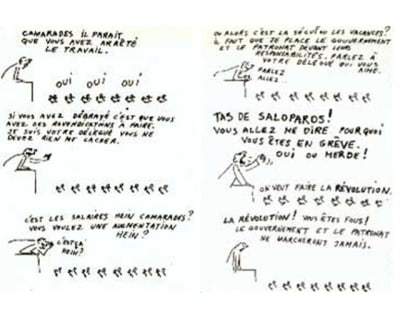 CAMARADES IL PARAÎT
QUE VOUS AVEZ ARRÊTÉ
LE TRAVAIL.
OUI OUI OUI
SI VOUS AVEZ DÉBRAYÉ C'EST QUE VOUS
AVEZ DES REVENDICATIONS À FAIRE.
JE SUIS VOTRE DÉLÉGUÉ VOUS NE
DEVEZ RIEN ME CACHER.
C'EST LES SALAIRES HEIN CAMARADES?
VOUS VOULEZ UNE AUGMENTATION
HEIN?
C'EST ÇA
HEIN?
OU ALORS C'EST LA SÉCU? OU LES VACANCES?
IL FAUT QUE JE PLACE LE GOUVERNEMENT
ET LE PATRONAT DEVANT LEURS
RESPONSABILITÉS. PARLEZ À
VOTRE DÉLÉGUÉ QUI VOUS
AIME.
PARLEZ
ALLEZ.
TAS DE SALOPARDS!
VOUS ALLEZ ME DIRE POURQUOI
VOUS ÊTES EN GRÈVE.
OUI OU MERDE!
ON VEUT FAIRE LA RÉVOLUTION.
LA RÉVOLUTION! VOUS ÊTES FOUS!
LE GOUVERNEMENT ET LE PATRONAT
NE MARCHERONT JAMAIS.